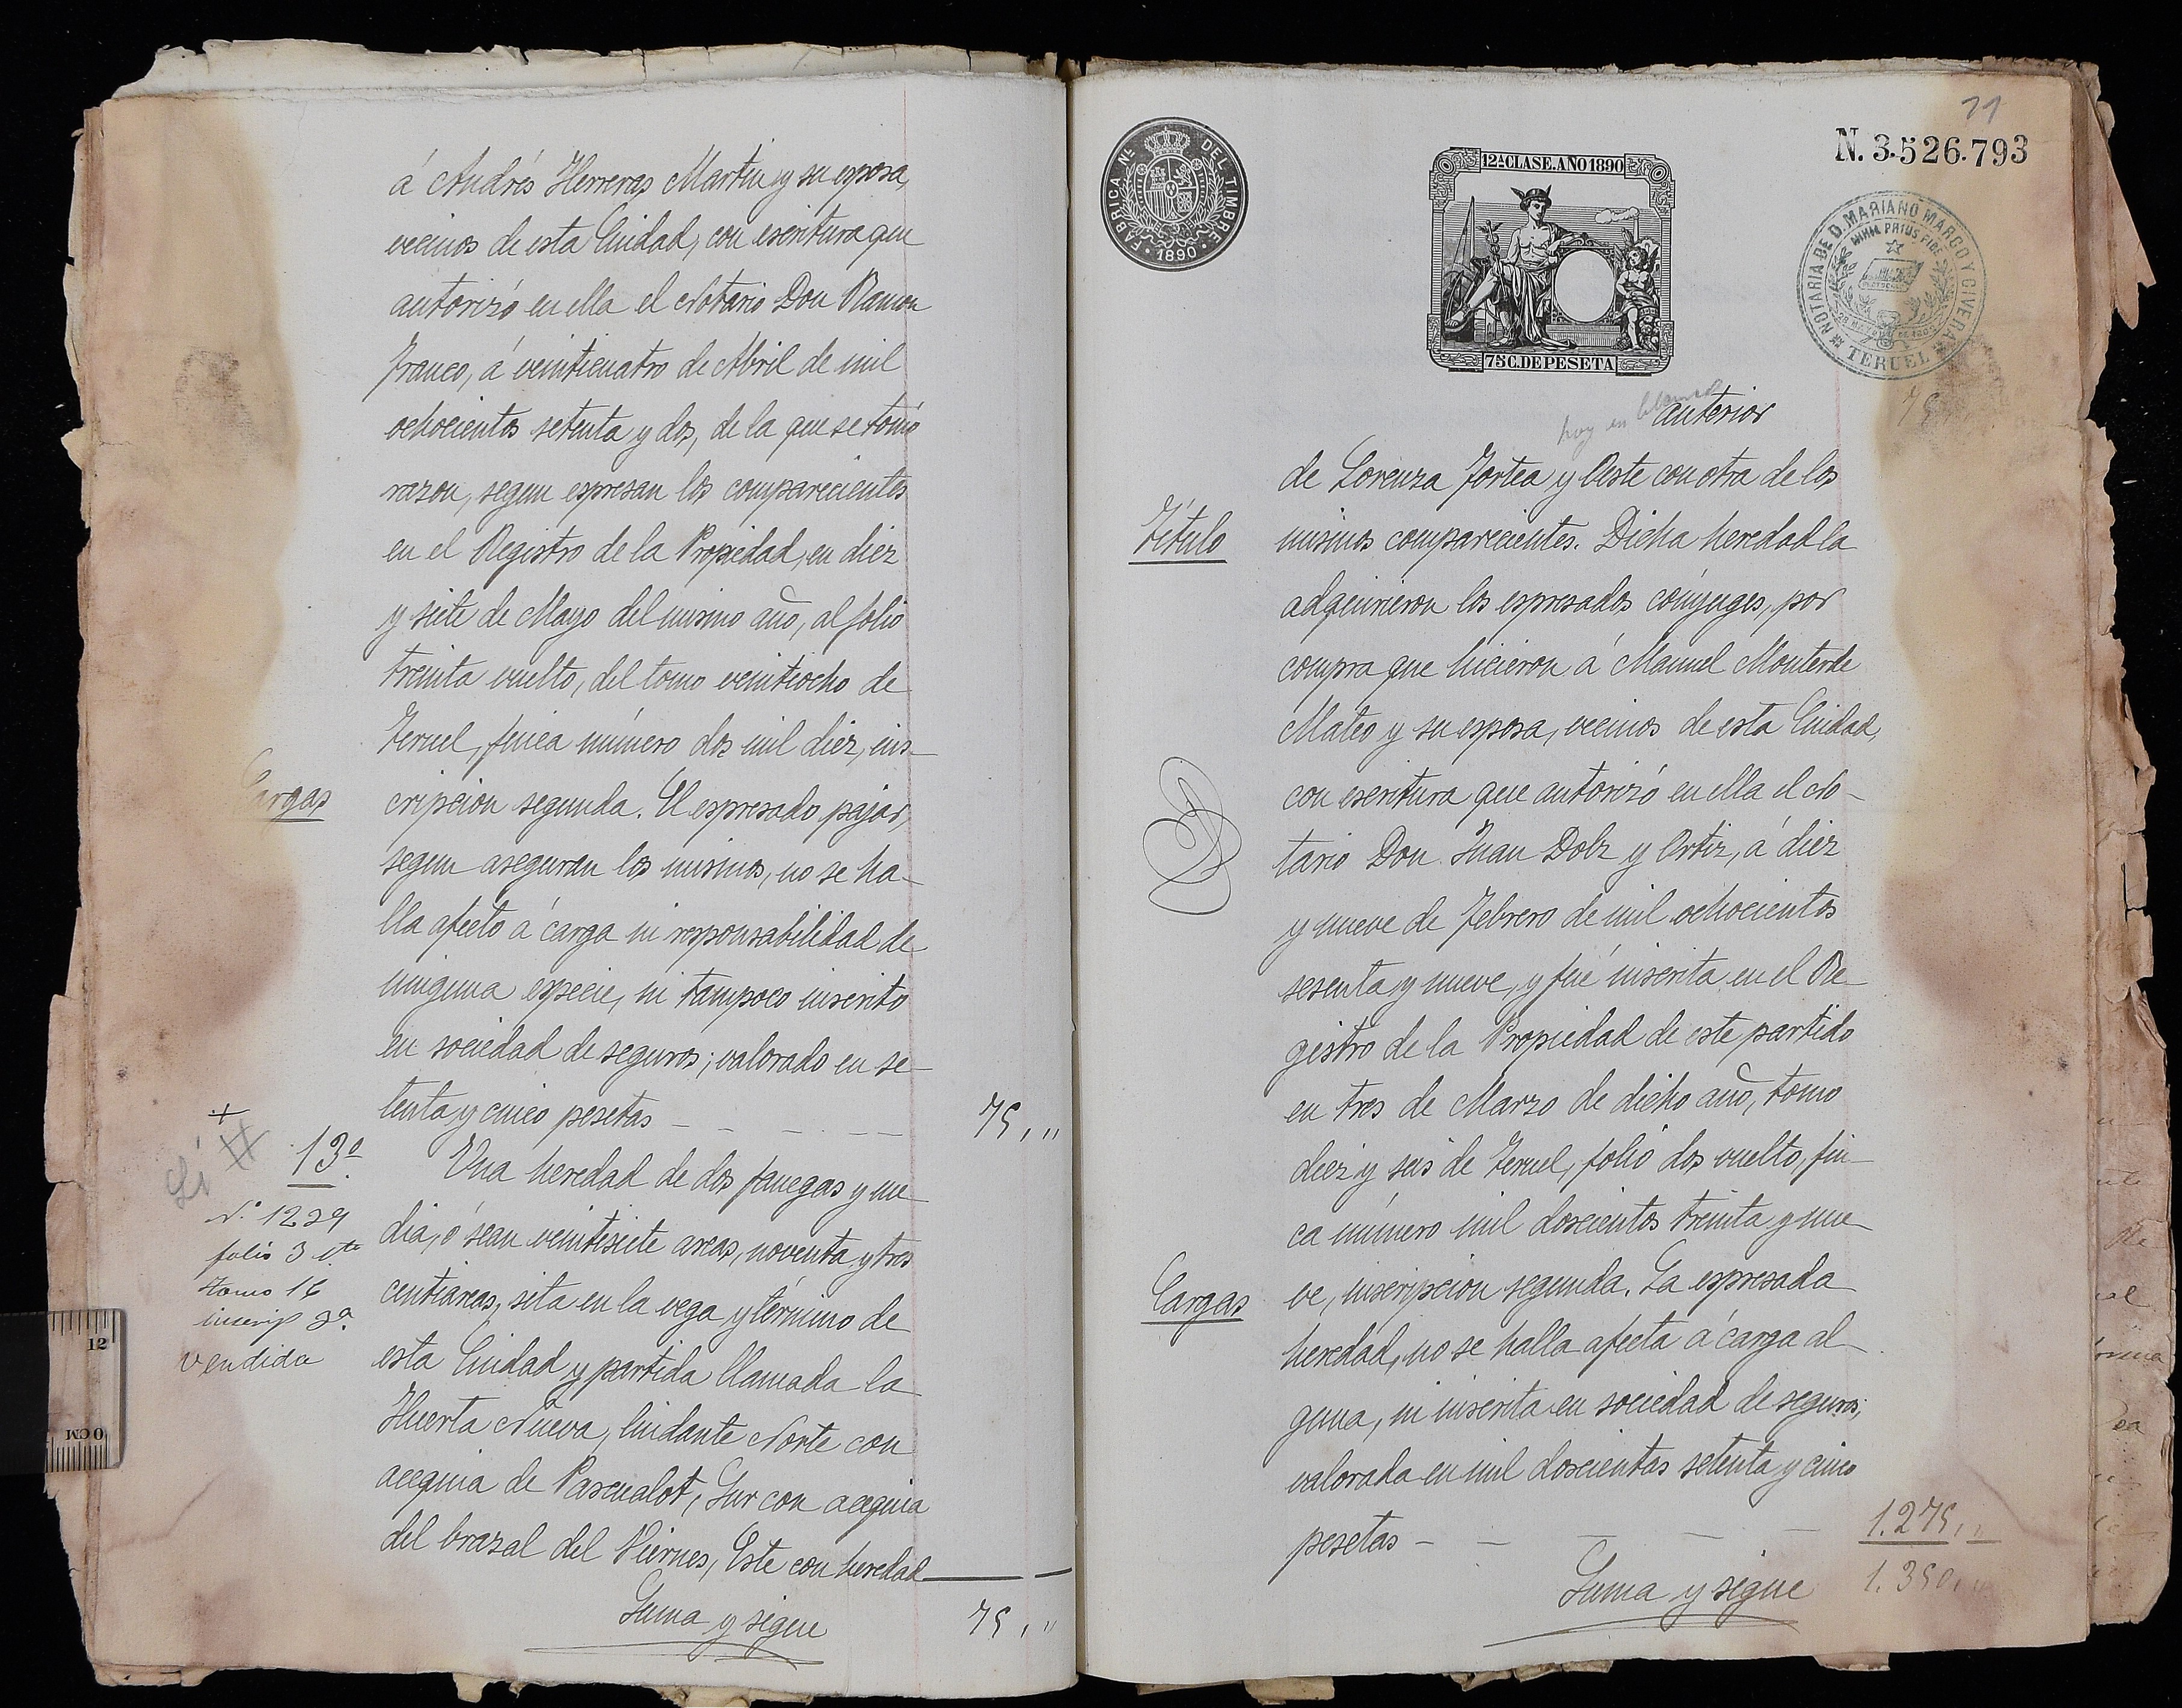 á Andrés Herreras Martin y su esposa,
vecinos de esta Ciudad, con escritura que
autorizó en ella el Notario Don Ramon
Franco, á veinticuatro de Abril de mil
ochocientos setenta y dos, de la que se tomó
razon, segun espresan los comparecientes
en el Registro de la Propiedad, en diez
y siete de Mayo del mismo año, al folio
treinta vuelto, del tomo veintiocho de
Teruel, finca número dos mil diez, ins-
Cargas
cripcion segunda. El espresado pajar,
segun aseguran los mismos, no se ha-
lla afecto á carga ni responsabilidad de
ninguna especie, ni tampoco inscrito
en sociedad de seguros; valorado en se-
tenta y cinco pesetas - - - - - 75,,,
Si
13ª
Una heredad de dos fanegas y me-
N.º 1239
dia, ó sean veintisiete areas, noventa y tres
folio 3 vto
centiareas, sita en la vega y término de
tomo 16
inscrip 3ª
esta Ciudad y partida llamada la
vendida
Huerta Nueva, lindante Norte con
acequia de Pascualot, Sur con acequia
del brazal del Viernes, Este con heredad
Suma y sigue 75,,,
71
N. 3.526.793
FABRICA NAL. DEL TIMBRE
1890
12ª CLASE. AÑO 1890
75 C. DE PESETA
NOTARIA DE D. MARIANO MARCO Y CIVERA
NIHIL PRIUS FIDE
TERUEL
75
hoy en blanco
anterior
de Lorenza Fortea y Oeste con otra de los
Título
mismos comparecientes. Dicha heredad la
adquirieron los espresados cónyuges, por
compra que hicieron á Manuel Monterde
Mateo y su esposa, vecinos de esta Ciudad,
con escritura que autorizó en ella el No-
tario Don Juan Dolz y Ortiz, á diez
y nueve de Febrero de mil ochocientos
sesenta y nueve, y fué inscrita en el Re-
gistro de la Propiedad de este partido
en tres de Marzo de dicho año, tomo
diez y seis de Teruel, folio dos vuelto, fin-
ca número mil doscientos treinta y nue-
Cargas
ve, inscripcion segunda. La espresada
heredad, no se halla afecta á carga al-
guna, ni inscrita en sociedad de seguros;
valorada en mil doscientas setenta y cinco
pesetas - - - - - 1.275,,,
1.350,,,
Suma y sigue